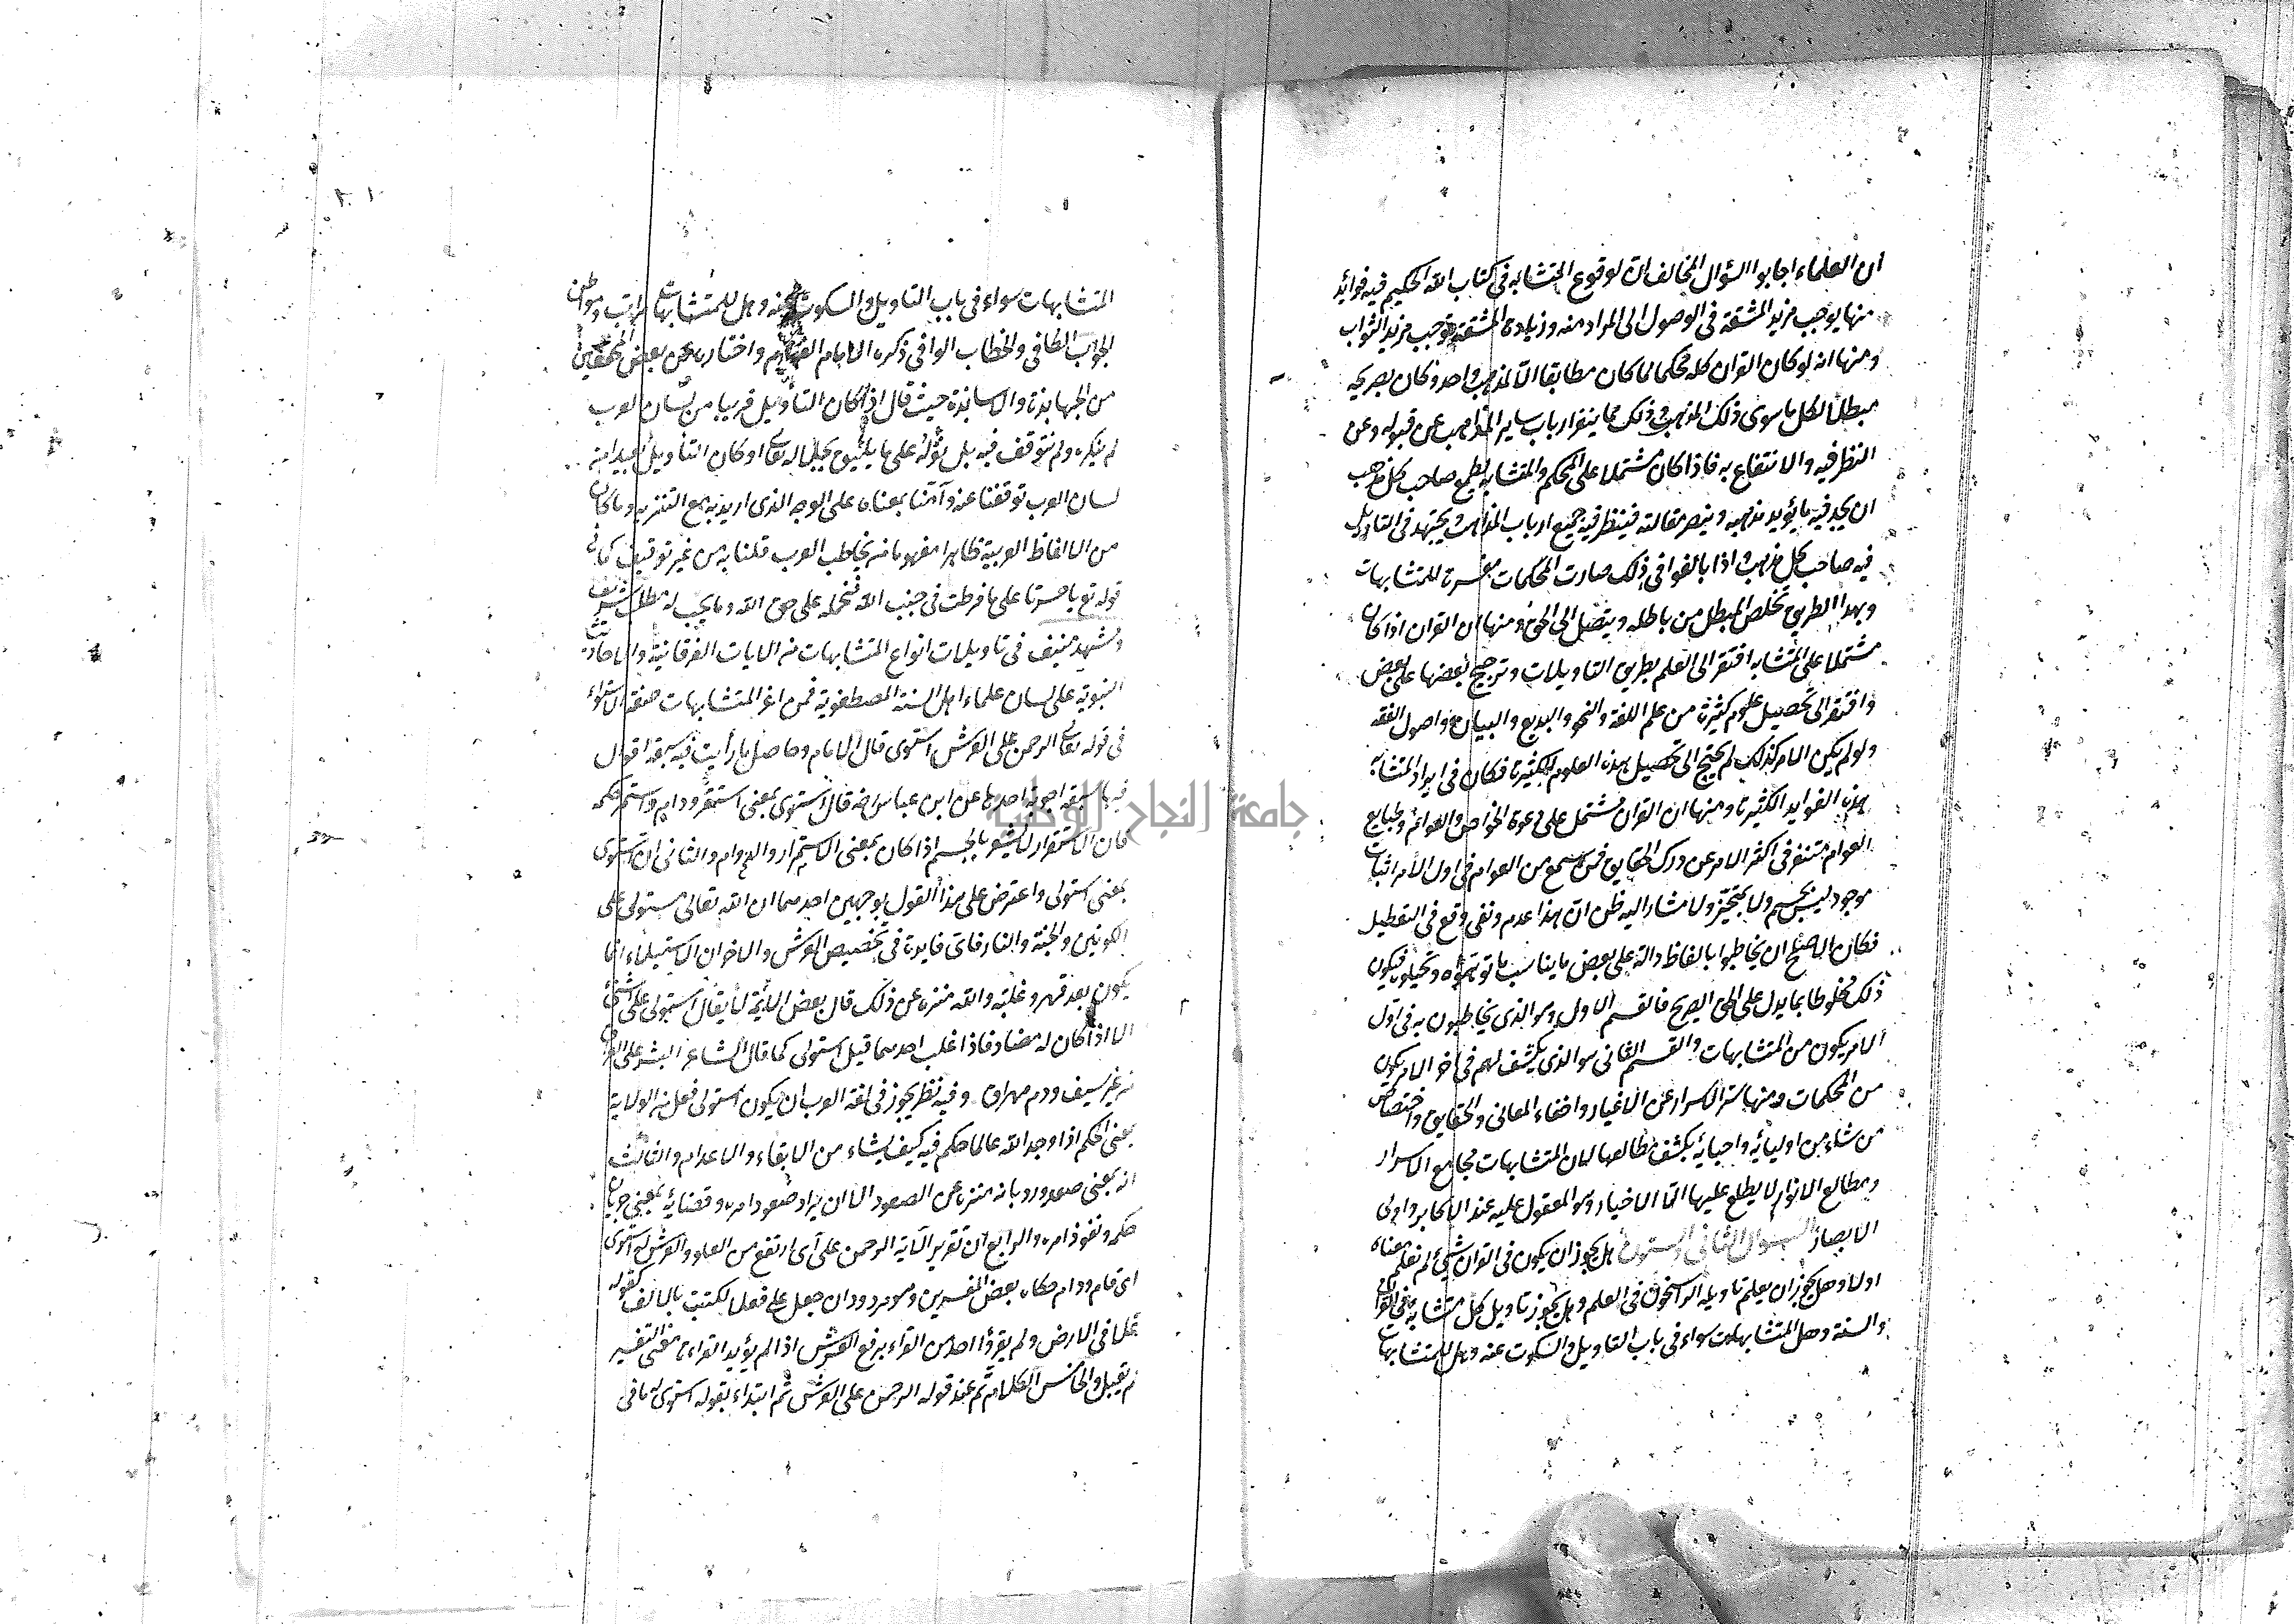 ان العلماء اجابوا السؤال المخالف ان لوقوع المتشابه في كتاب الله الحكيم فيه فوائد
منها يوجب مزيد المشقة في الوصول الى المراد منه وزيادة المشقة توجب مزيد الثواب
ومنها انه لو كان القران كله محكما لما كان مطابقا الا لمذهب واحد وكان بصريحه
مبطلا لكل ما سوى ذلك المذهب وذلك مما ينفر ارباب ساير المذاهب عن قبوله وعن
النظر فيه والانتفاع به فاذا كان مشتملا على المحكم والمتشابه يطمع صاحب كل مذهب
ان يجد فيه ما يؤيد مذهبه وينصر مقالته فينظر فيه جميع ارباب المذاهب ويجتهد في التأويل
فيه صاحب كل مذهب اذا بالغوا في ذلك صارت المحكمات مفسرة للمتشابهات
وبهذا الطريق تخلص المبطل من باطله ويتصل الى الحق ومنها ان القران اذا كان
مشتملا على المتشابه افتقر الى العلم بطريق التاويلات وترجيح بعضها على بعض
وافتقر الى تحصيل علوم كثيرة من علم اللغة والنحو والبديع والبيان واصول الفقه
ولو لم يكن الامر كذلك لم يحتج الى تحصيل هذه العلوم الكثيرة فكان في ايراد المتشابه
هذه الفوايد الكثيرة ومنها ان القران مشتمل على دعوة الخواص والعوام وطبايع
العوام متنفر في اكثر الامر عن درك الحقايق فمن سمع من العوام في اول الامر اثبات
موجود ليس بجسم ولا بمتحيز ولا مشار اليه ظن ان هذا عدم ونفي وقع في التعطيل
فكان الاصلح ان يخاطبوا بالفاظ دالة على بعض ما يناسب ما توهموه وتخيلوه فيكون
ذلك مخلوطا بما يدل على الحق الصريح فالقسم الاول وهو الذي يخاطبون به في اول
الامر يكون من المتشابهات والقسم الثاني هو الذي يكشف لهم في اخر الامر يكون
من المحكمات ومنها ستر الاسرار عن الاغيار واخفاء المعاني والحقايق واختصاص
من شاء من اوليائه واحبائه بكشف مطالعها لان المتشابهات مجامع الاسرار
ومطالع الانوار لا يطلع عليها الا الاخيار وهو المعقول عليه عند الاكابر واولى
الابصار السؤال الثاني والستون هل يجوز ان يكون في القران شيئ لم نعلم معناه
اولا وهل يجوز ان يعلم تاويله الراسخون في العلم وهل يجوز تاويل كل متشابه في القران
والسنة وهل المتشابهات سواء في باب التاويل والسكوت عنه وهل للمتشابهات
المتشابهات سواء في باب التاويل والسكوت عنه وهل للمتشابهات مراتب ومواطن
الجواب الكافي والخطاب الوافي ذكره الامام واختاره من بعض المحققين
من الجهابذة والاساتذة حيث قال اذا كان التأويل قريبا من لسان العرب
لم ينكر ولم نتوقف فيه بل نؤله على ما يليق بجلاله تعالى او كان التأويل بعيدا من
لسان العرب توقفنا عنه وآمنا بمعناه على الوجه الذي اريد به مع التنزيه وما كان
من الالفاظ العربية ظاهرا مفهوما من تخاطب العرب قلنا به من غير توقيف كما في
قوله تع يا حسرتا على ما فرطت في جنب الله فنحمله على حق الله وما يجب له مطلب شريف
ومشهد منيف في تاويلات انواع المتشابهات من الايات الفرقانية والاحاديث
النبوية على لسان علماء اهل السنة المصطفوية فمن اغر المتشابهات صفة الاستواء
في قوله تعالى الرحمن على العرش استوى قال الامام وحاصل ما رأيت فيه سبعة اقوال
فيها سبعة اجوبة احدها عن ابن عباس انه قال استوى بمعنى استقر ودام واستمر حكمه
كان الاستقرار لا يشعر بالجسم اذا كان بمعنى الاستمرار والدوام والثاني ان استوى
بمعنى استولى واعترض على هذا القول بوجهين احدهما ان الله تعالى مستولى على
الكونين والجنة والنار فاي فايدة في تخصيص العرش والاخر ان الاستيلاء انما
يكون بعد قهر وغلبة والله منزه عن ذلك قال بعض الائمة لا يقال استولى على الشئ
الا اذا كان له مضاد فاذا غلب احدهما قيل استولى كما قال الشاعر البشر على العراق
من غير سيف ودم مهراق وفيه نظر يجوز في لغة العرب ان يكون استولى فعل من الولاية
بمعنى الحكم اذا وجد الله عالما حكم فيه كيف يشاء من الابقاء والاعدام والثالث
انه بمعنى صعد ورد بانه منزه عن الصعود الا ان يراد صعود امره وقضائه بمعنى جريان
حكمه ونفوذ امره والرابع ان تقرير الآية الرحمن علا أي ارتفع من العلو والعرش له استوى
اى قام ودام حكاه بعض المفسرين وهو مردود ان جعل على فعلا لكتبت بالالف كقوله
علا في الارض ولم يقرؤا احد من القراء برفع العرش اذا لم يؤيد القراءة معنى التفسير
لم يقبل والخامس الكلام تم عند قوله الرحمن على العرش ثم ابتداء بقوله استوى له ما في
جامعة النجاح الوطنية